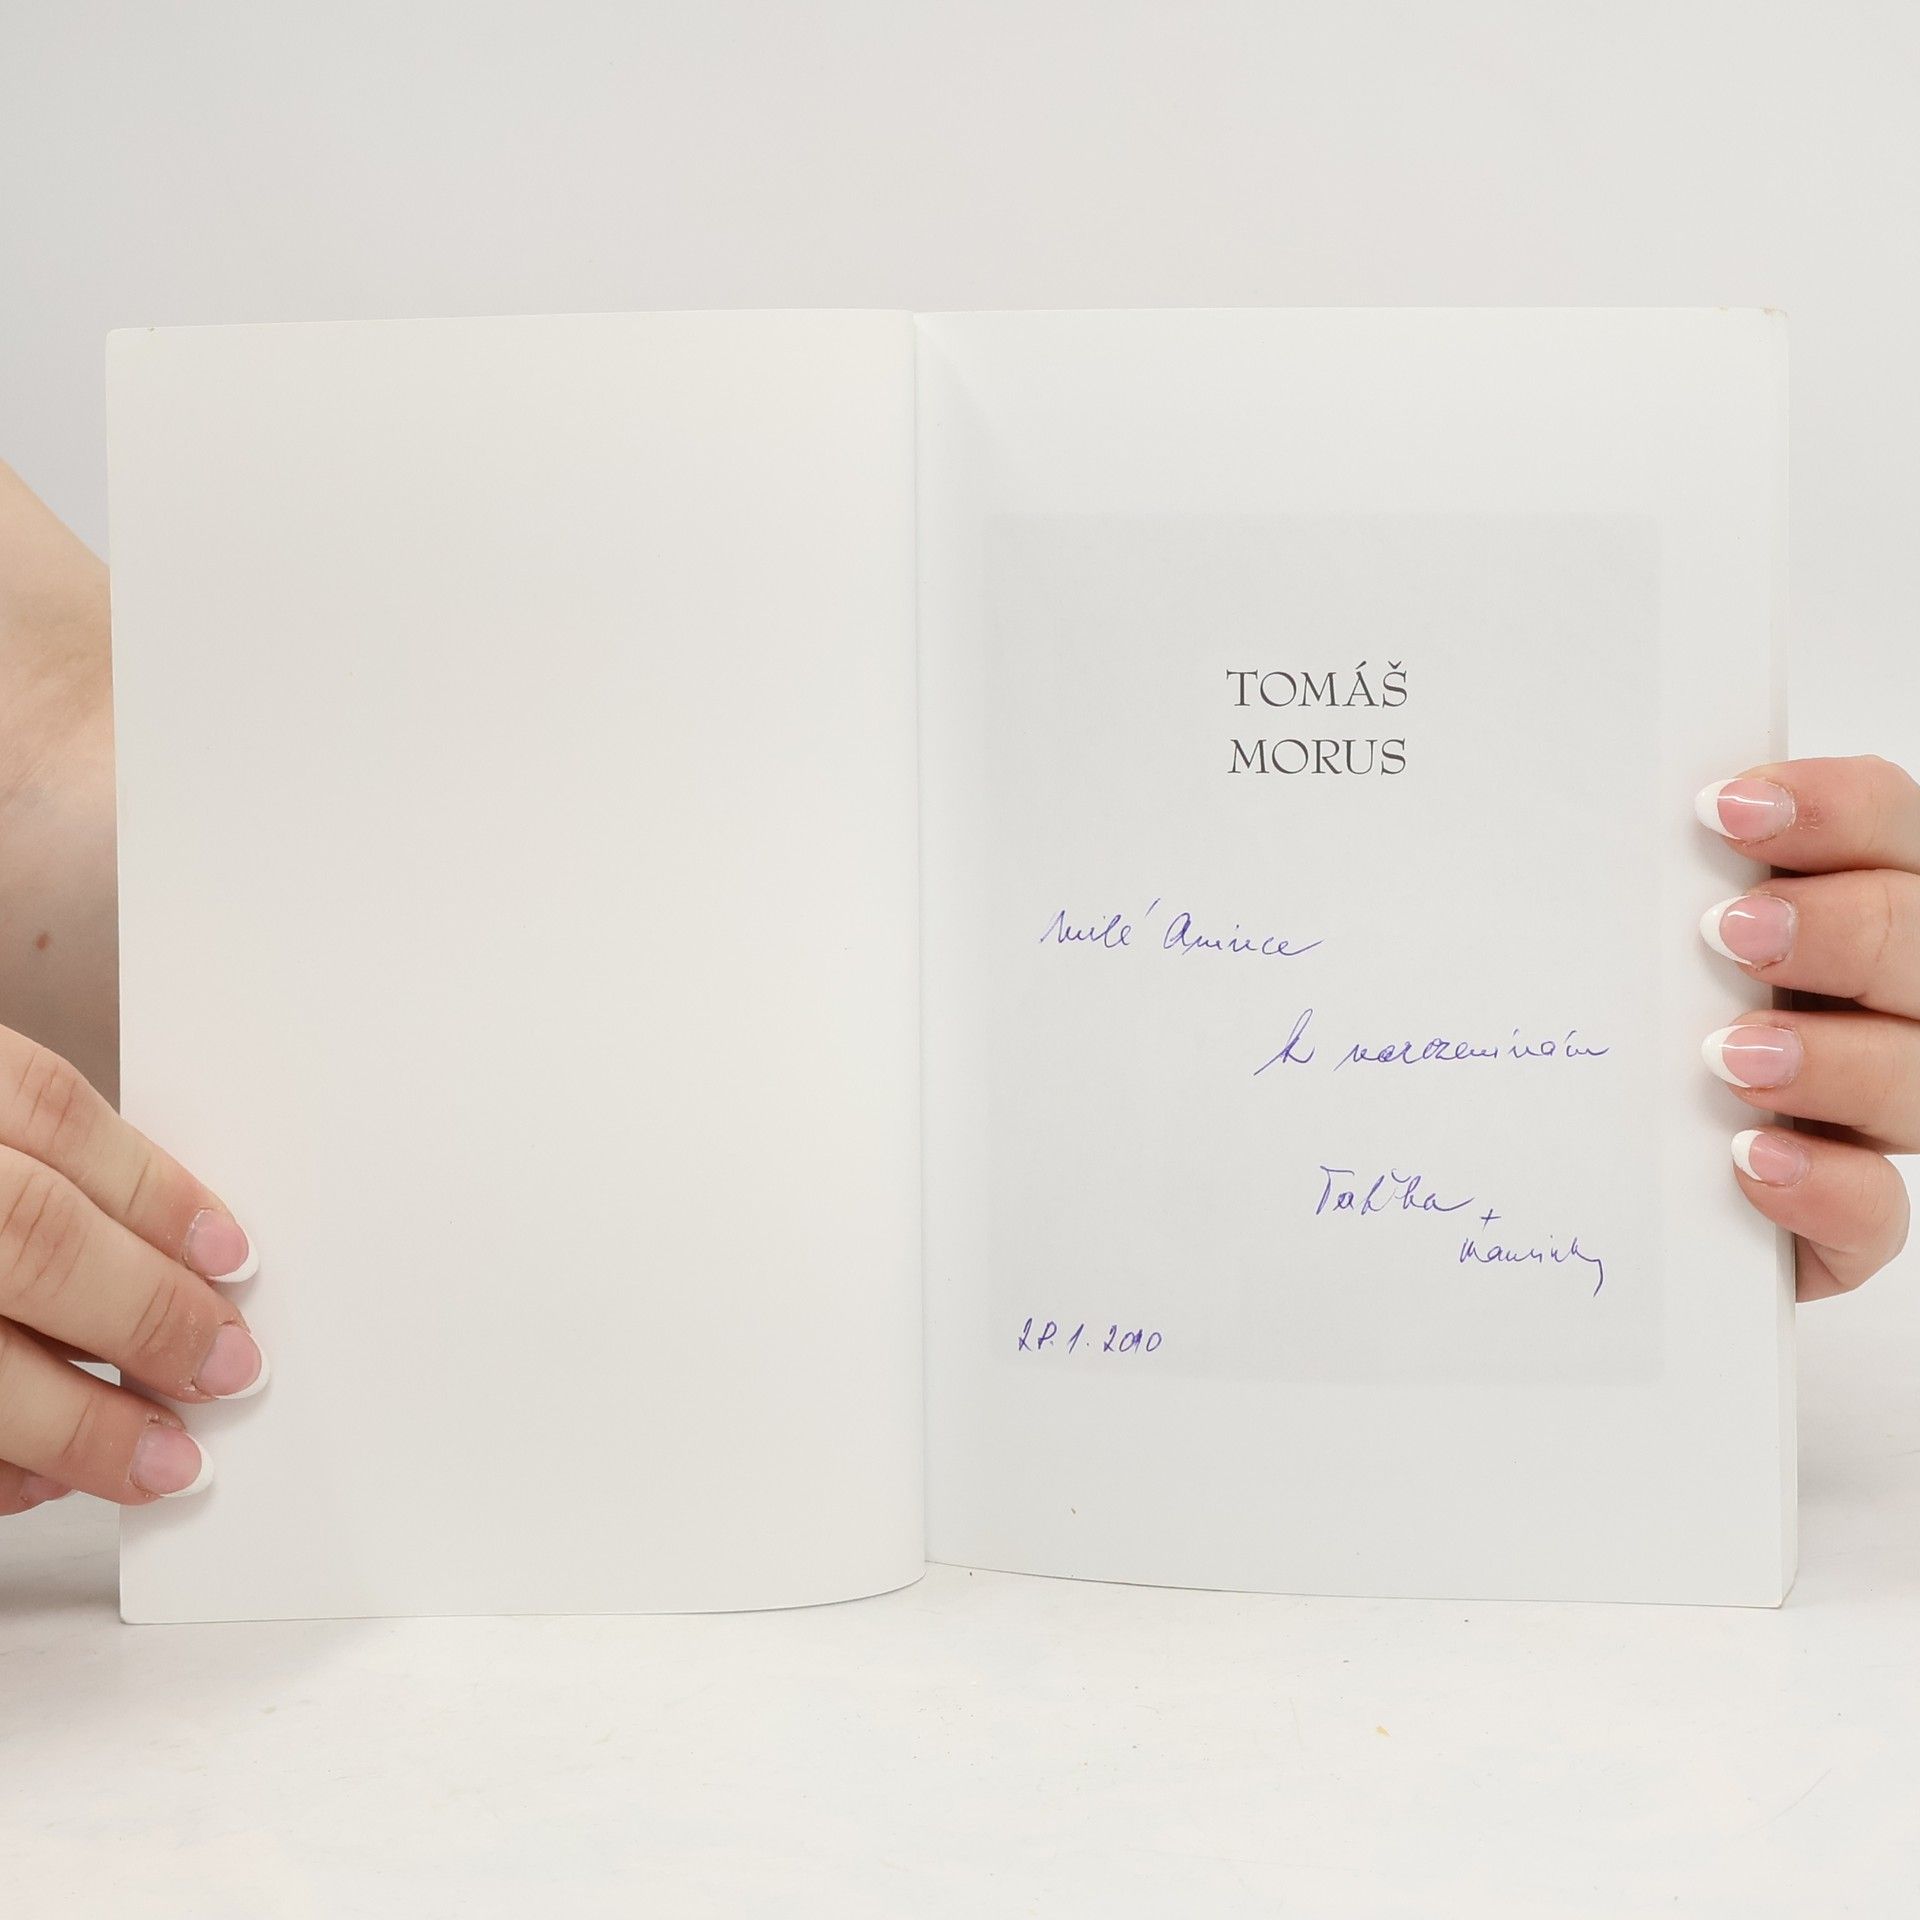 TOMÁŠ
MORUS
milé Anince
k narozeninám
Taťka +
Maminky
28.1.2010